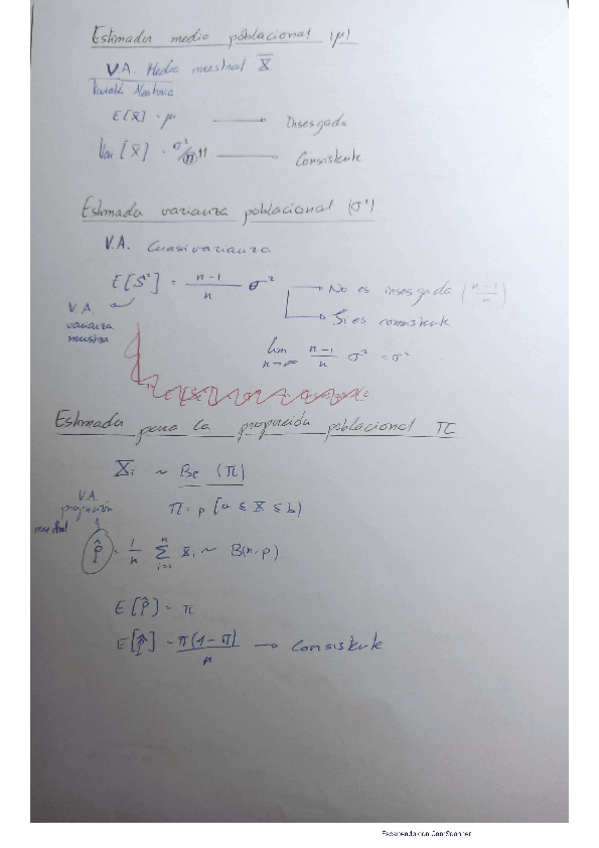 Estimador media poblacional (μ)
V.A. Media muestral X̄
Variable Aleatoria
E[X̄] = μ → Insesgado
Var[X̄] = σ²/n → Consistente
Estimador varianza poblacional (σ²)
V.A. Cuasivarianza
E[S²] = n-1/n σ² → No es insesgado (n-1/n)
→ Si es consistente
V.A.
varianza
muestra
lim n→∞ n-1/n σ² = σ²
Estimador para la proporción poblacional π
Xi ~ Be (π)
V.A.
proporción
muestral
π = p (a ≤ X ≤ b)
p̂ = 1/n Σ i=1 n Xi ~ B(n, p)
E[p̂] = π
E[p̂] = π(1-π)/n → Consistente
Escaneado con CamScanner